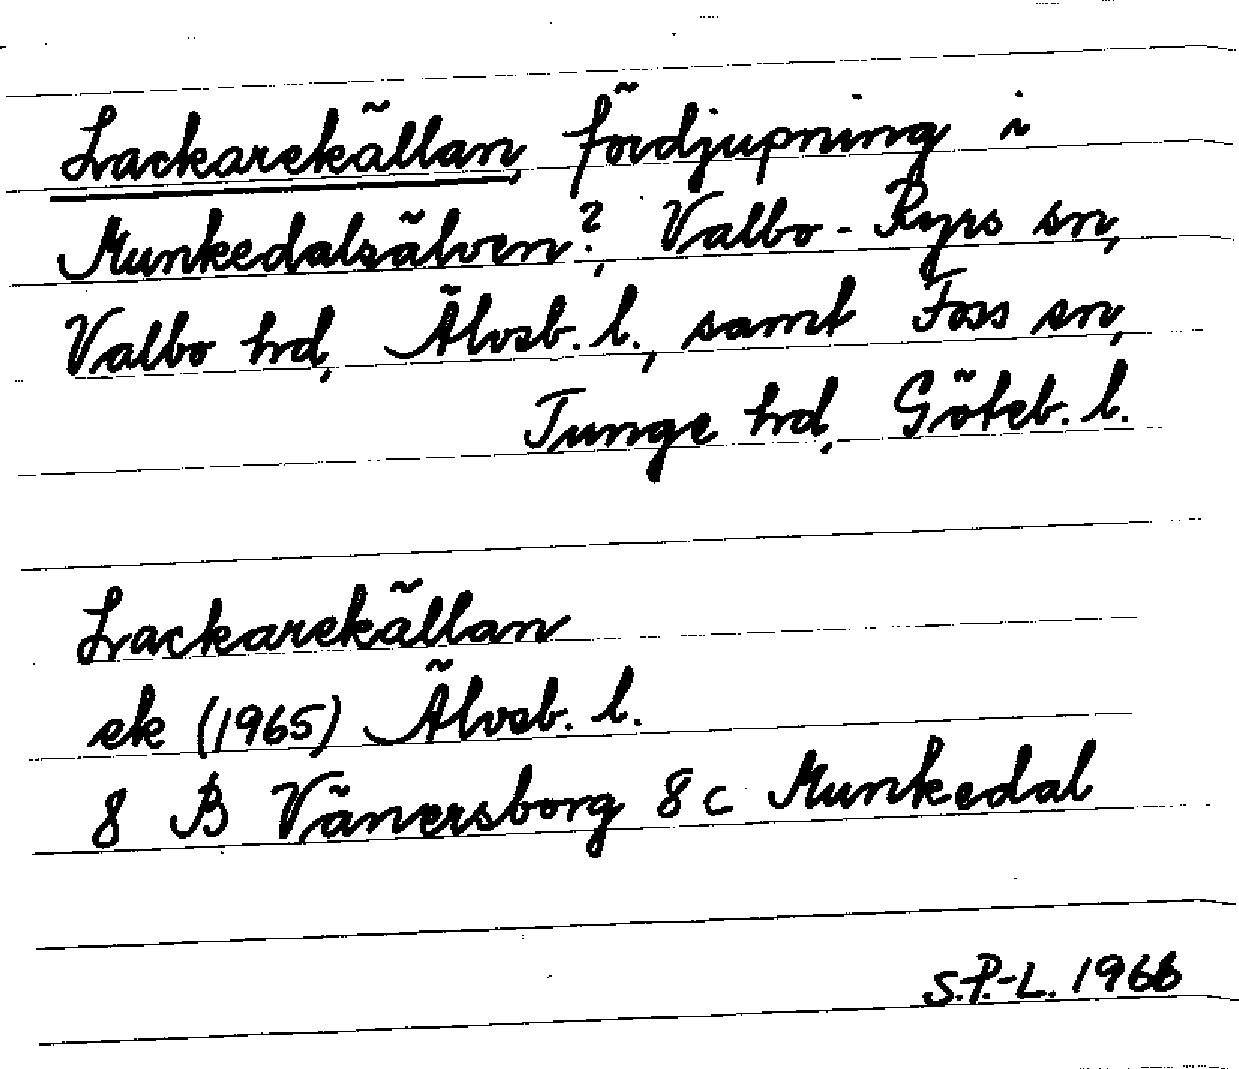 Lackarekällan, fördjupning i
Munkedalsälven?, Valbo-Ryrs sn,
Valbo hd, Älvsb. l., samt Foss sn,
Tunge hd, Göteb. l.
Lackarekällan
ek (1965) Älvsb. l.
8 B Vänersborg 8c Munkedal
S.P.-L. 1966